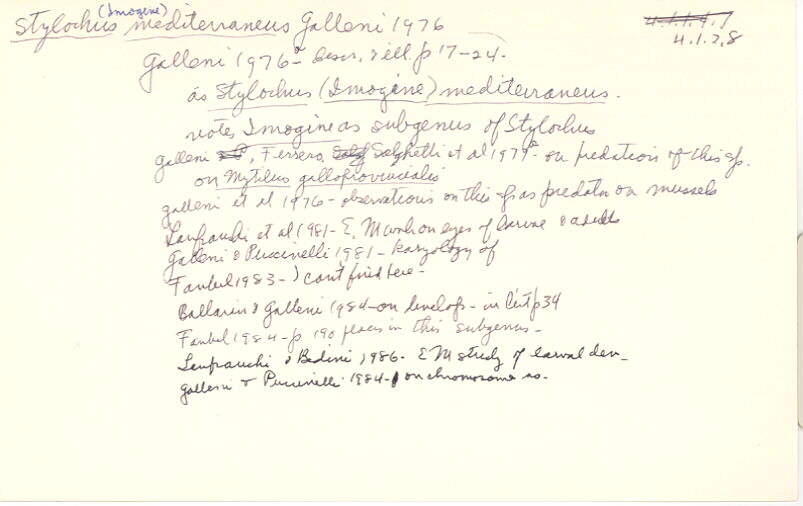 Stylochus (Imogine) mediterraneus Galleni 1976
4.1.1.4.7
4.1.2.8
Galleni 1976a - descr. & ill. p 17-24.
as Stylochus (Imogine) mediterraneus.
notes Imogine as subgenus of Stylochus
Galleni, Ferrero, Salghetti et al 1979 - on predation of this sp.
on Mytilus galloprovincialis
Galleni et al 1976 - observations on this sp as predator on mussels
Lanfranchi et al 1981 - E. M work on eyes of larvae & adults
Galleni & Puccinelli 1981 - karyology of
Faubel 1983 - can't find here -
Ballarin & Galleni 1984 - on develop - in Cut p 34
Faubel 1984 - p 190 places in this subgenus -
Lanfranchi & Bedini 1986 - E M study of larval dev -
Galleni & Puccinelli 1984 - on chromosome no.